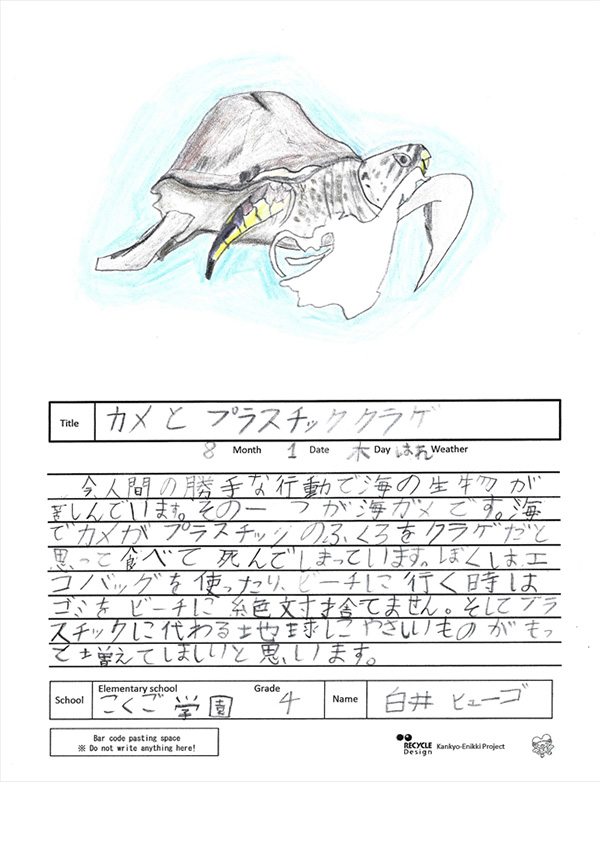 Title カメと プラスチッククラゲ
8 Month 1 Date 木 Day はれ Weather
今、人間の勝手な行動で海の生き物が
苦しんでいます。その一つが海ガメです。海
でカメがプラスチックのふくろをクラゲだと
思って食べて死んでしまっています。ぼくは、エ
コバッグを使ったり、ビーチに行く時は
ゴミをビーチに絶対捨てません。そしてプラ
スチックに代わる地球にやさしいものがもっ
と増えてほしいと思います。
School Elementary school こくご学園 Grade 4 Name 白井 ヒューゴ
Bar code pasting space
※ Do not write anything here!
RECYCLE Design Kankyo-Enikki Project